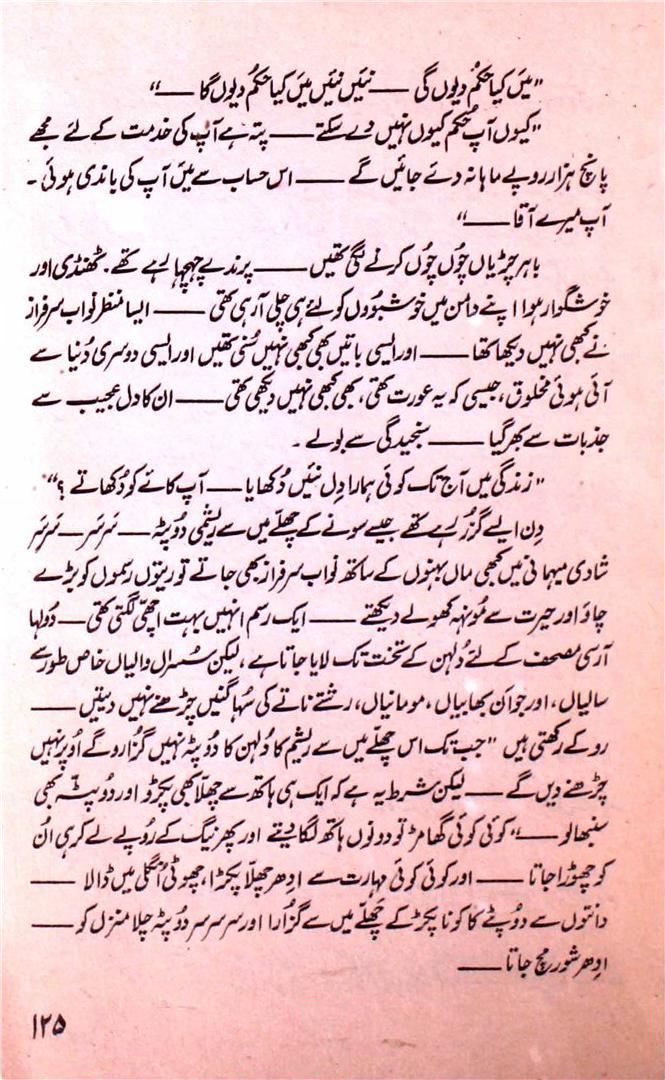 "میں کیا حکم دیوں گی — نئیں نئیں میں کیا حکم دیوں گا —"
"کیوں آپ حُکم کیوں نہیں دے سکتے — پتہ ہے آپ کی خدمت کے لئے مجھے
پانچ ہزار روپے ماہانہ دئے جائیں گے — اس حساب سے میں آپ کی باندی ہوئی۔
آپ میرے آقا —"
باہر چڑیاں چُوں چُوں کرنے لگی تھیں — پرندے چہچہا رہے تھے۔ ٹھنڈی اور
خوشگوار ہوا اپنے دامن میں خوشبوؤں کو لئے ہی چلی آ رہی تھی — ایسا منظر نواب سرفراز
نے کبھی نہیں دیکھا تھا — اور ایسی باتیں بھی کبھی نہیں سُنی تھیں اور ایسی دوسری دُنیا سے
آئی ہوئی مخلوق، جیسی کہ یہ عورت تھی، بھی کبھی نہیں دیکھی تھی — ان کا دل عجیب سے
جذبات سے بھر گیا — سنجیدگی سے بولے۔
"زندگی میں آج تک کوئی ہمارا دِل نئیں دُکھایا — آپ کائے کو دُکھاتے؟"
دِن ایسے گزُر رہے تھے جیسے سونے کے چھلّے میں سے ریشمی دوپٹہ — سَرسَر — سَرسَر
شادی میہمانی میں کبھی ماں بہنوں کے ساتھ نواب سرفراز بھی جاتے تو ریتوں رسموں کو بڑے
چاؤ اور حیرت سے مُونہہ کھولے دیکھتے — ایک رسم انہیں بہت اچھّی لگتی تھی — دُولہا
آرسی مصحف کے لئے دُلہن کے تخت تک لایا جاتا ہے، لیکن سُسرال والیاں خاص طور سے
سالیاں، اور جوان بھابیاں، مومانیاں، رشتے ناتے کی سُہاگنیں چڑھنے نہیں دیتیں —
روکے رکھتی ہیں "جب تک اس چھلّے میں سے ریشم کا دُلہن کا دُوپٹہ نہیں گزاروگے اُوپر نہیں
چڑھنے دیں گے — لیکن شرط یہ ہے کہ ایک ہی ہاتھ سے چھلّا بھی پکڑو اور دُوپٹہ بھی
سنبھالو —" کوئی کوئی گھامڑ تو دونوں ہاتھ لگا لیتے اور پھر نیگ کے رُوپے لے کر ہی اُن
کو چھوڑا جاتا — اور کوئی کوئی مہارت سے اِدھر چھلّا پکڑا، چھوٹی اُنگلی میں ڈالا —
دانتوں سے دُوپٹے کا کونا پکڑ کے چَھلّے میں سے گُزارا اور سرسر سر دُوپٹہ چلا منزل کو —
اِدھر شور مچ جاتا —
۱۲۵